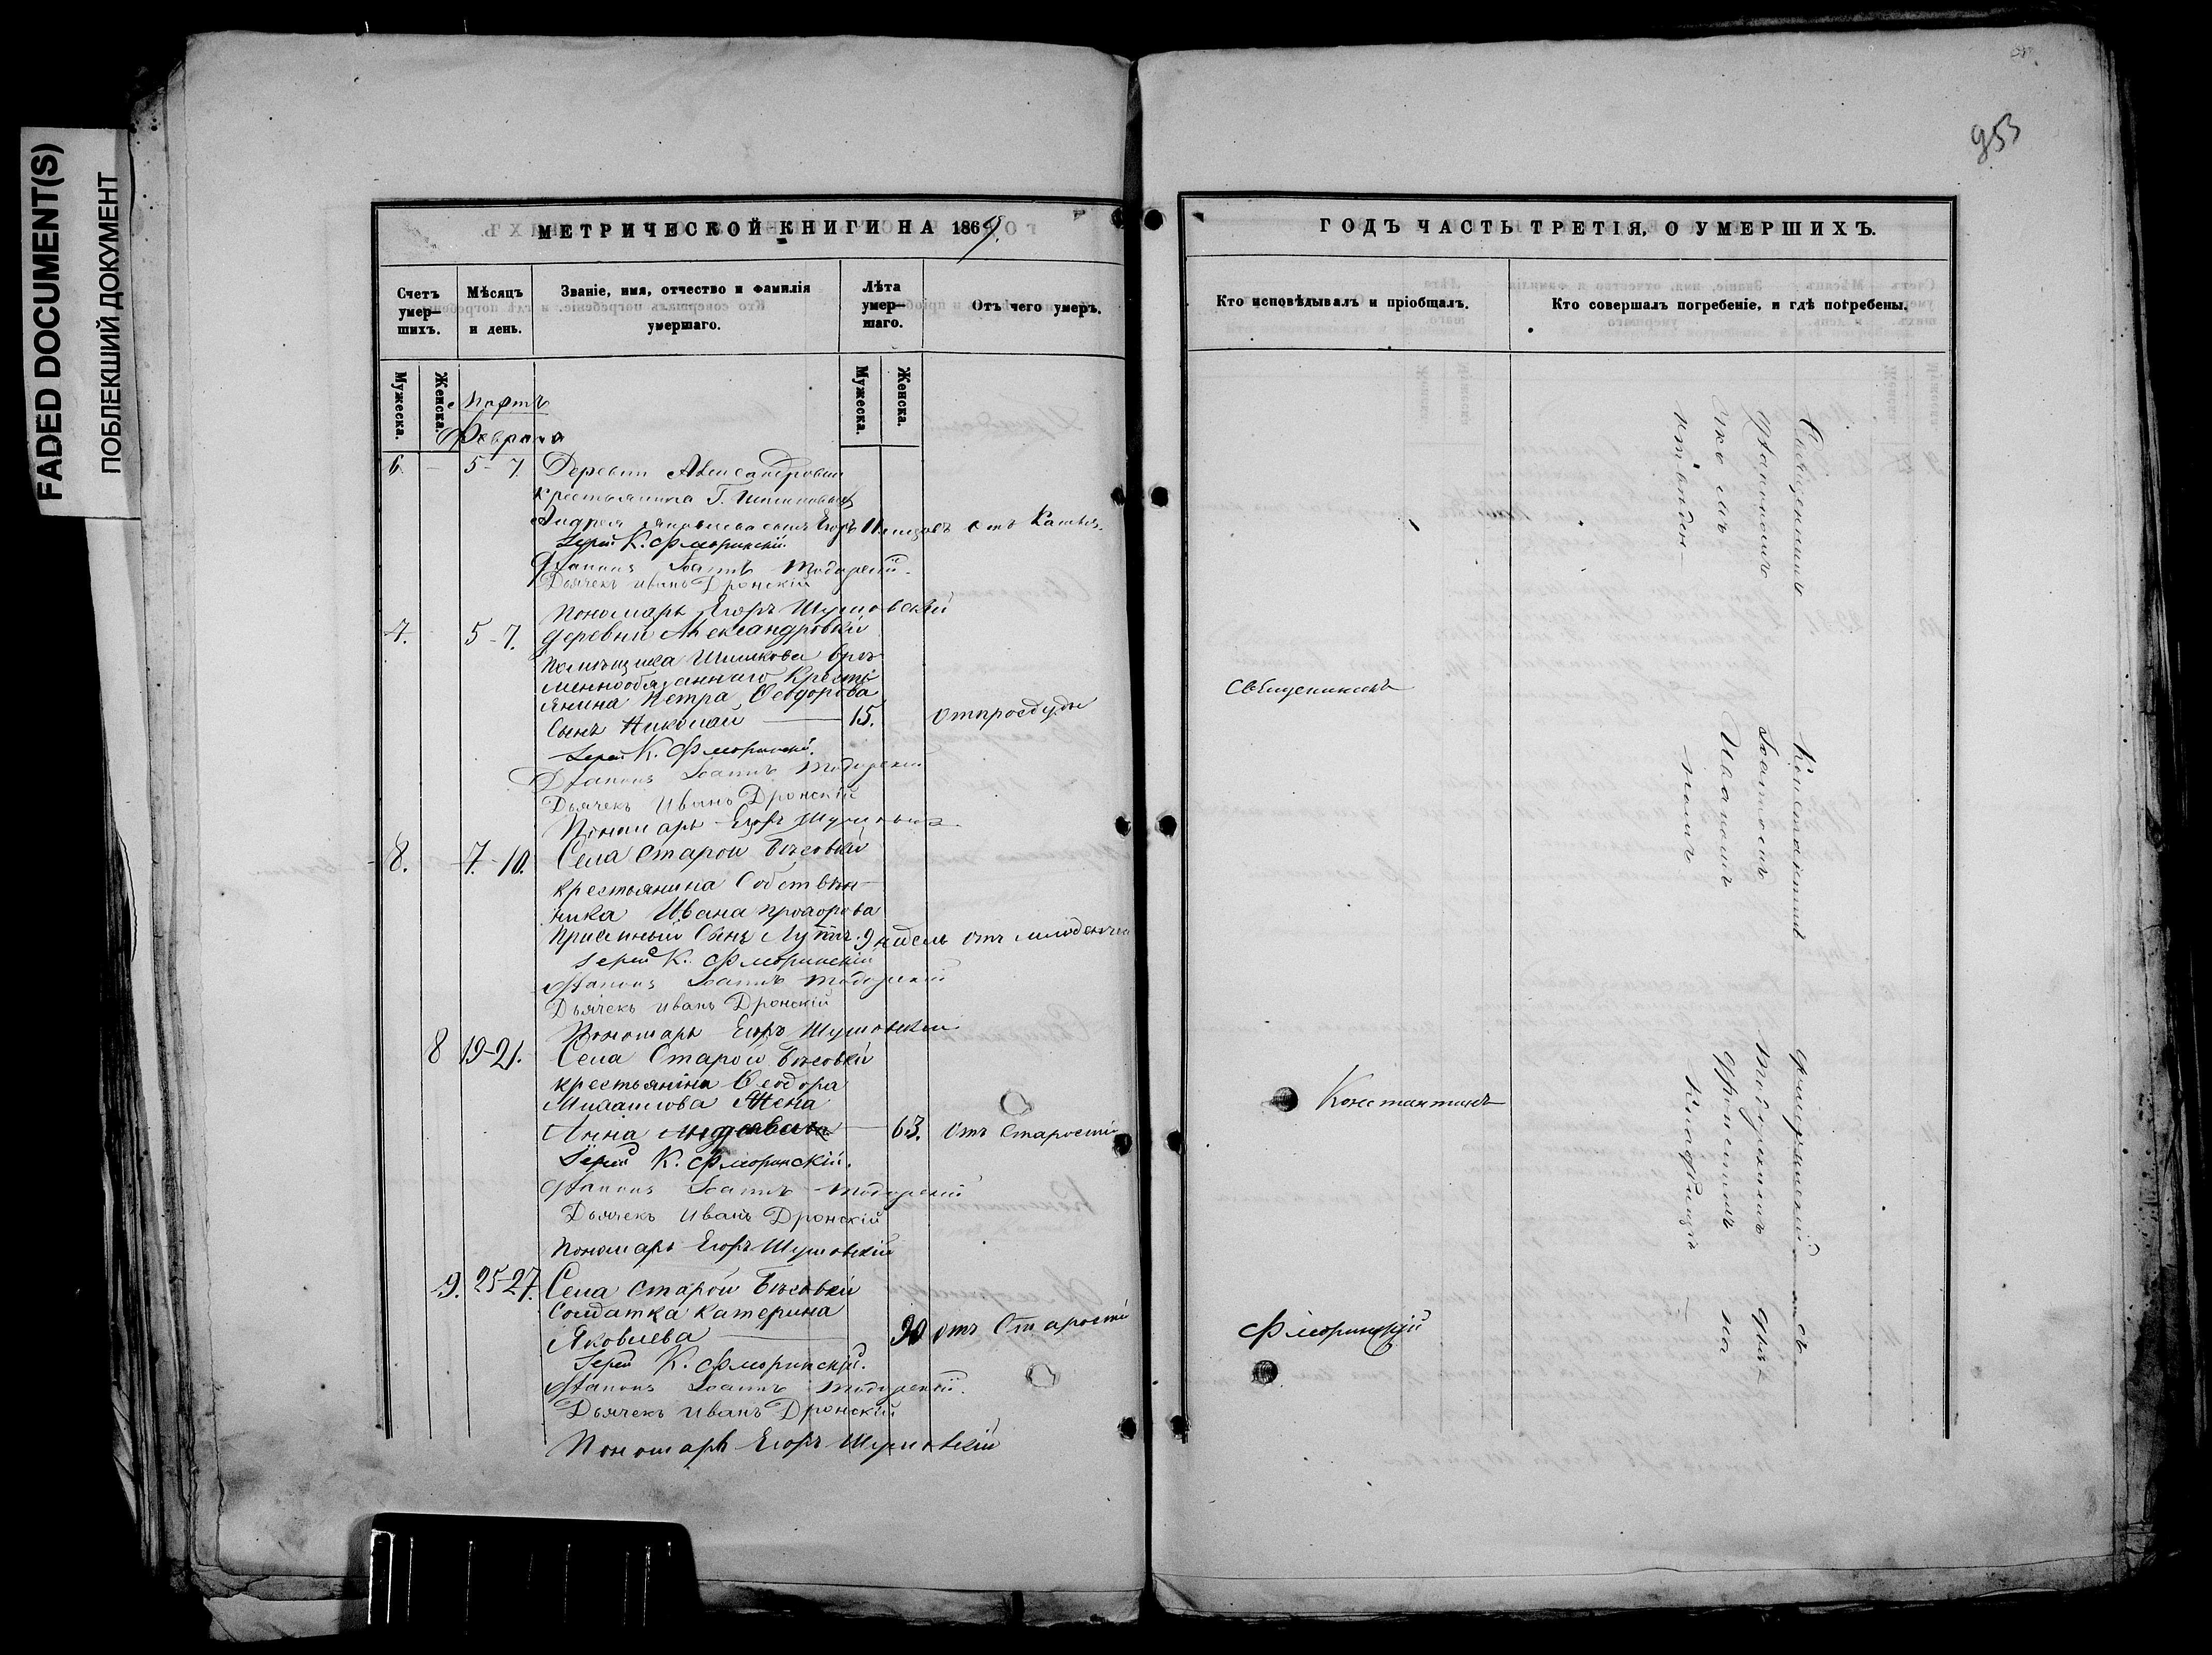 FADED DOCUMENT(S)
ПОБЛЕКШИЙ ДОКУМЕНТ
953
МЕТРИЧЕСКОЙ КНИГИ НА 1869
Счетъ умер—шихъ.
Мѣсяцъ и день.
Званіе, имя, отчество и фамилія умершаго.
Лѣта умер—шаго.
Отъ чего умеръ.
Мужеска.
Женска.
Мартъ
Февраля
Мужеска.
Женска.
6. 5-7. Деревни Александровки
крестьянина Г. Шишкова
Андрея сынъ Егоръ 11 отъ Кашля.
Іерей К. Флоринскій.
Діаконъ Іоаннъ
Дьячекъ иванъ Дронскій
Пономарь Егоръ Шумовскій
7. 5-7. деревни Александровки
помѣщика Шишкова вре
меннообязаннаго Кресть
янина Петра Ѳеодорова
Сынъ Николай 15. Отпросуды
Іерей К. Флоринскій.
Діаконъ Іоаннъ
Дьячекъ Иванъ Дронскій
Пономарь Егоръ Шумовскій
8. 7-10. Села Старой Бѣсовки
крестьянина Собствен
ника Ивана прохорова
приемный Сынъ 9 нидель отъ
Іерей К. Флоринскій
Діаконъ Іоаннъ
Дьячекъ иванъ Дронскій
Пономарь Егоръ Шумовскій
8 19-21. Села Старой Бѣсовки
крестьянина Ѳеодора
Михаилова Жена
Анна 63. отъ Старости
Іерей К. Флоринскій.
Діаконъ Іоаннъ
Дьячекъ Иванъ Дронскій
Пономарь Егоръ Шумовскій
9. 25-27. Села Старой Бѣсовки
Солдатка Катерина
Яковлева 90 отъ Старости
Іерей К. Флоринскій.
Діаконъ Іоаннъ
Дьячекъ Иванъ Дронскій
Пономарь Егоръ Шумовскій
ГОДЪ ЧАСТЬ ТРЕТІЯ, О УМЕРШИХЪ.
Кто исповѣдывалъ и пріобщалъ.
Кто совершалъ погребеніе, и гдѣ погребены.
Священникъ
Константинъ
Флоринскій
Священникъ Константинъ Флоринскій съ
Діакономъ Іоанномъ
Иваномъ Дронскимъ на
кладбищѣ